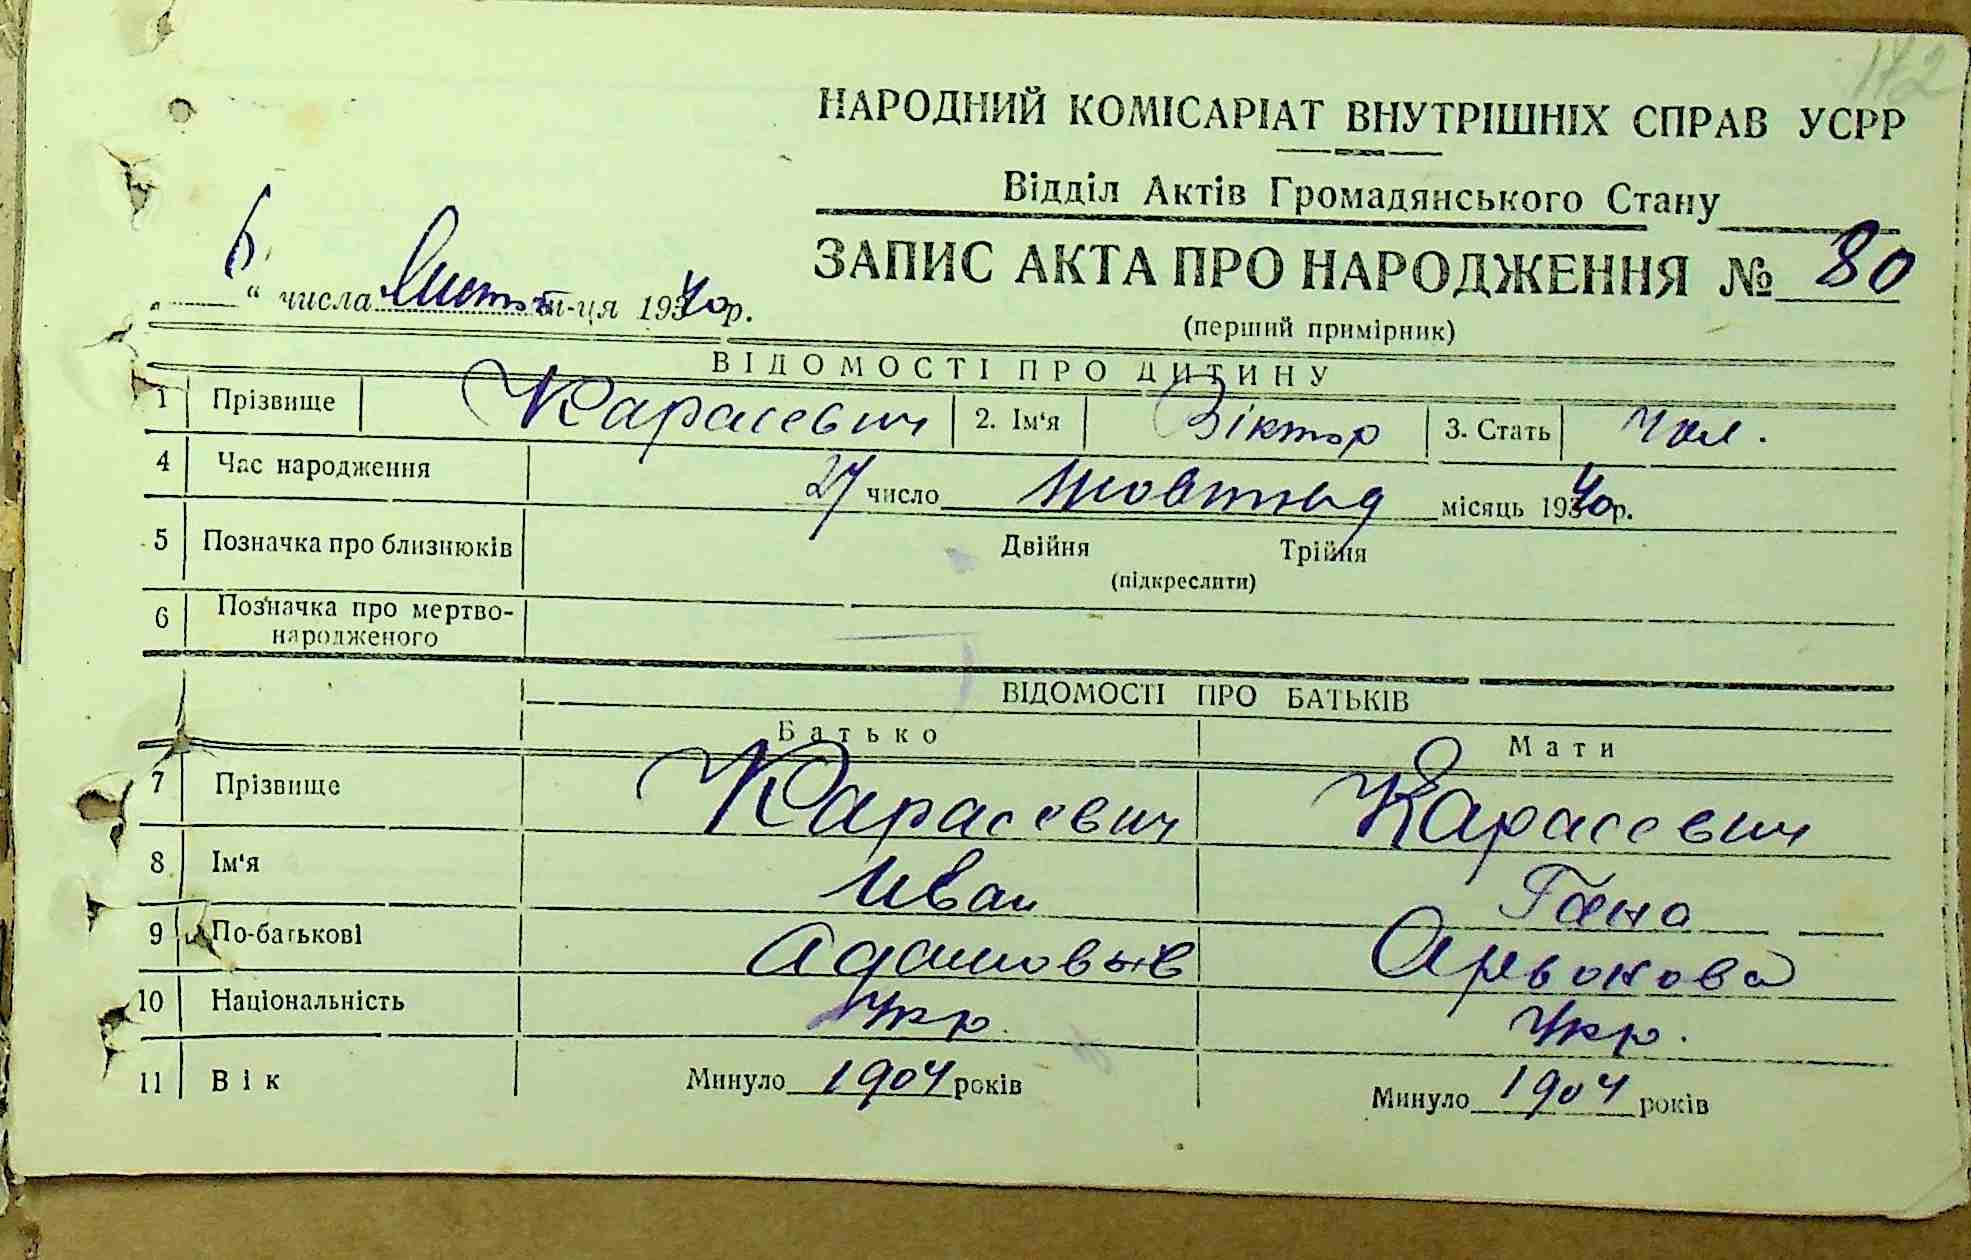 172
НАРОДНИЙ КОМІСАРІАТ ВНУТРІШНІХ СПРАВ УСРР
Відділ Актів Громадянського Стану
ЗАПИС АКТА ПРО НАРОДЖЕННЯ № 80
6 “ числа м-ця 1940 р.
(перший примірник)
ВІДОМОСТІ ПРО ДИТИНУ
1 Прізвище Карасевич 2. Ім‘я Віктор 3. Стать Чол.
4 Час народження 27 число Жовтня місяць 1940 р.
5 Позначка про близнюків Двійня Трійня
(підкреслити)
6 Позначка про мертво-
народженого
ВІДОМОСТІ ПРО БАТЬКІВ
Батько Мати
7 Прізвище Карасевич Карасевич
8 Ім‘я Иван Гана
9 По-батькові
10 Національність Укр. Укр.
11 Вік Минуло 1904 років Минуло 1904 років